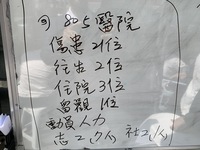 ③ 805醫院
傷患 21位
往生 2位
住院 3位
留觀 1位
動員人力
志工 2人 社工 1人